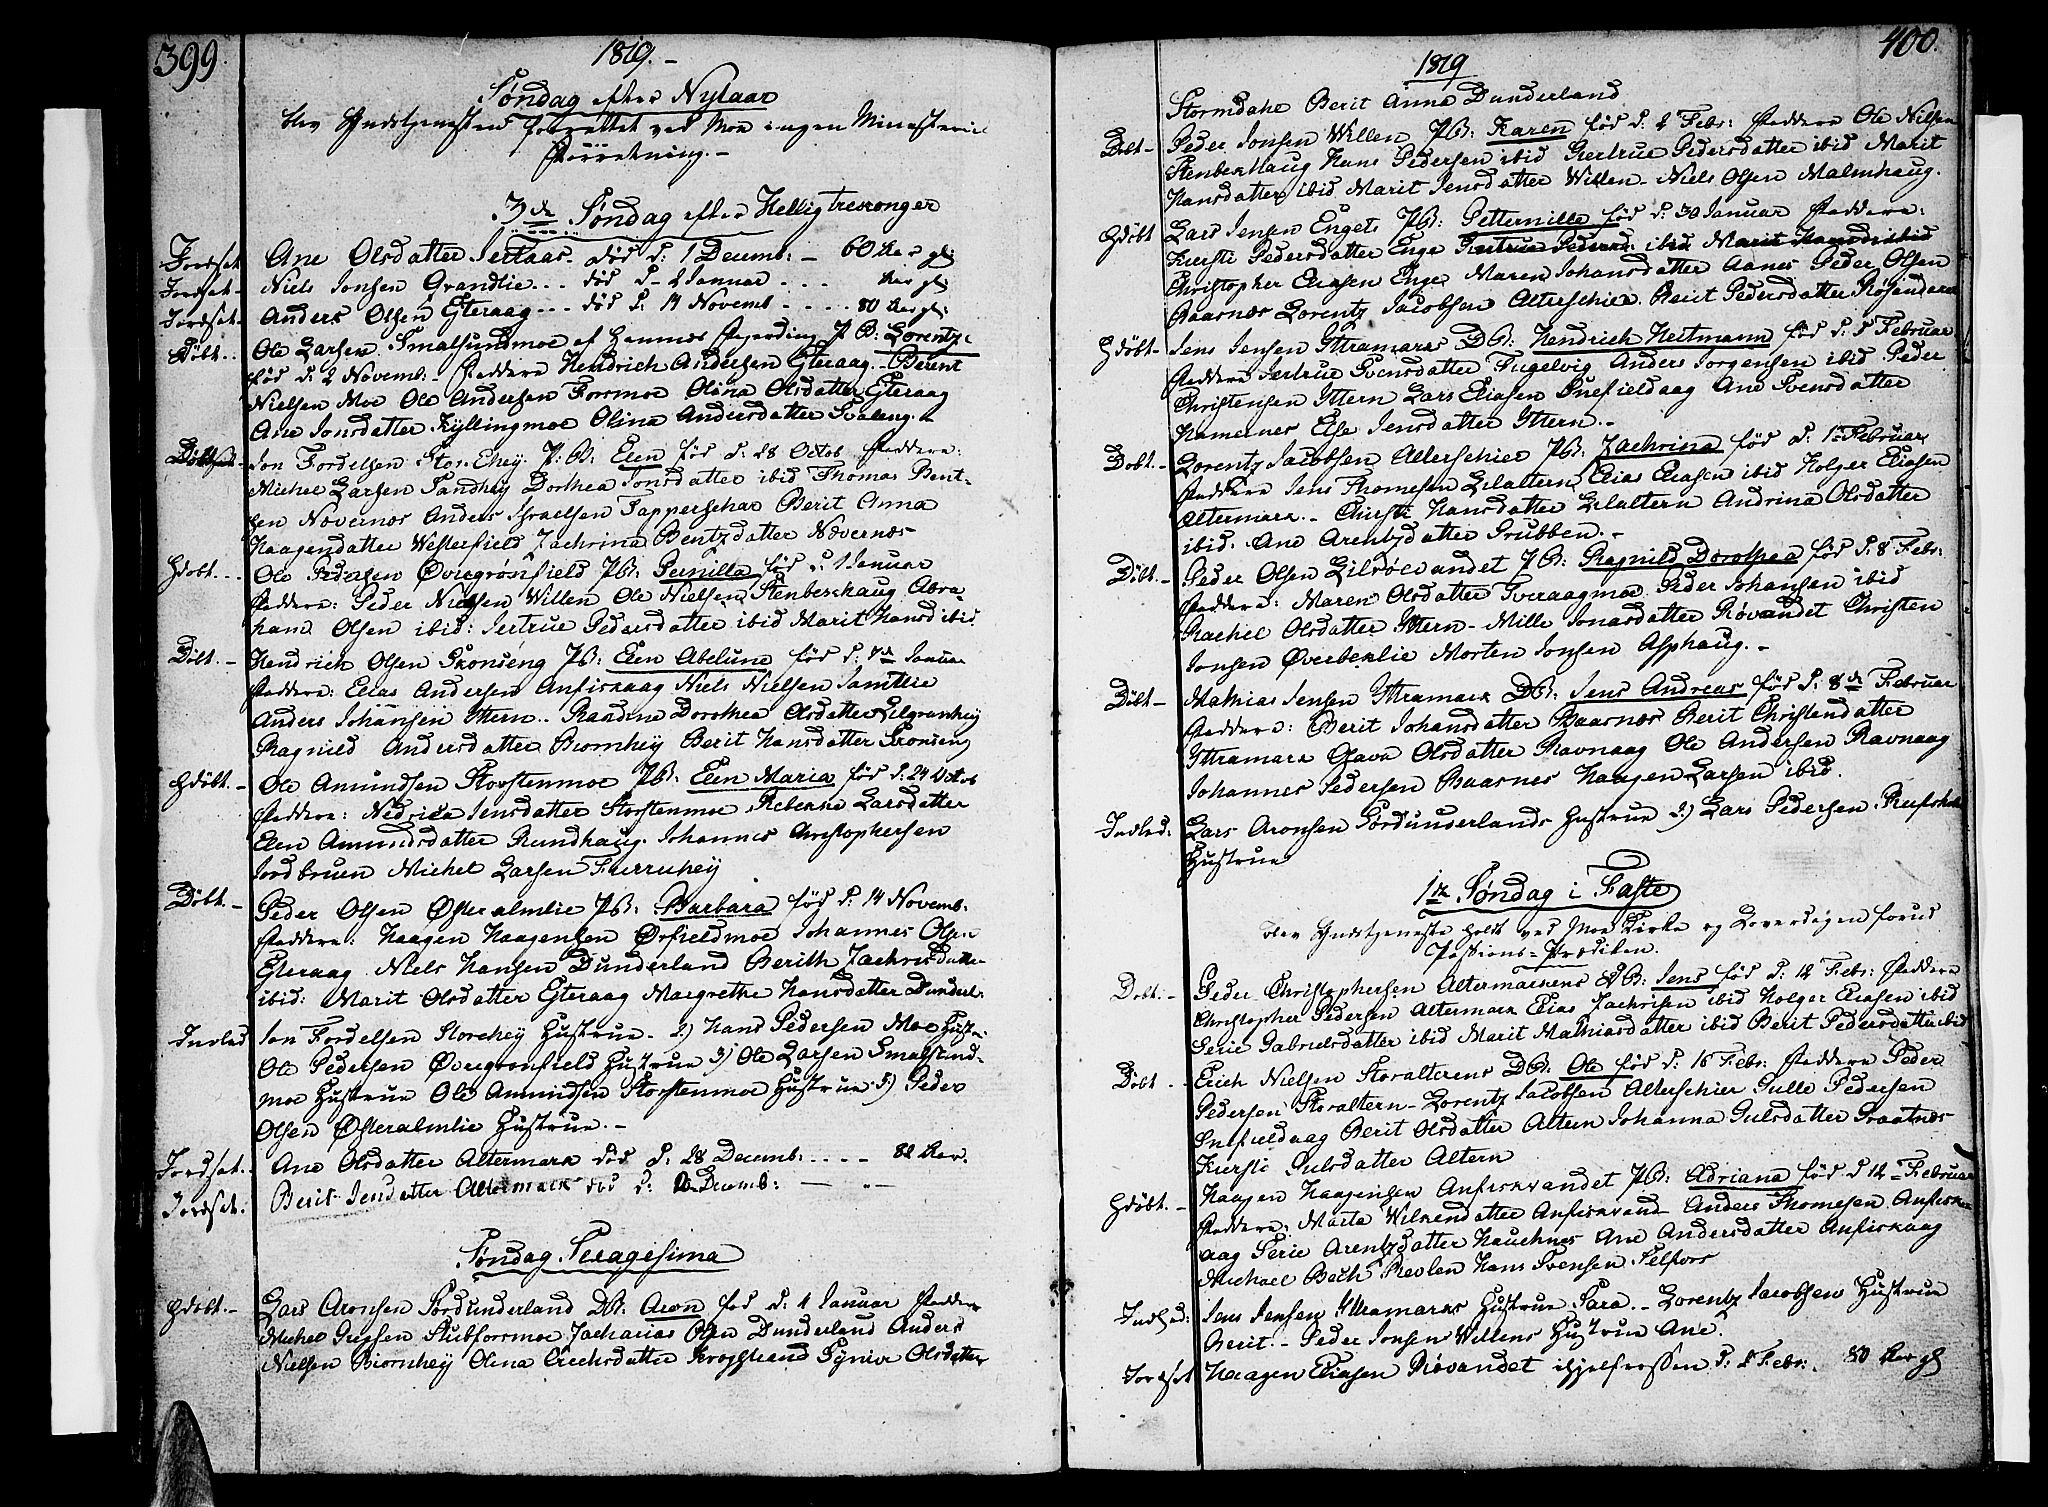 399
1819.
Søndag efter Nytaar
blev Gudstjenesten forrettet ved Moe ingen Ministeriel
Forretning.
3de Søndag efter Hellig trekonger
Jordset Ane Olsdatter død d: 1 Decemb: 60 Aar gl:
Jordset Niels Jonsen Grandlie død d: 2 Januar Aar gl:
Jordset Anders Olsen Yteraag død d: 14 Novemb 80 Aar gl:
Døbt Ole Larsen Smalsundmoe af Hemnes P B: Lorentz
fød d: 2 Novemb: Faddere Hendrich Andersen Yteraag Berent
Nielsen Moe Ole Andersen Forsmoe Olina Olsdatter Yteraag
Ane Jonsdatter Kyllingmoe Olina Andersdatter
Jon Fordelsen Storehey P: B: Elen fød d: 28 Octob Faddere:
Michel Larsen Sandhey Dorthea Jonsdatter ibid Thomas Bent-
sen Novernes Anders Israelsen Tapperschar Berit Anna
Haagensdatter Westerfield Zachrina Bentzdatter Nævernes
Hdøbt Ole Pedersen Øvregrønfield PB: Pernilla fød d: 1 Januar
Faddere: Peder Nielsen Willen Ole Nielsen Stenberhaug Abra
ham Olsen ibid: Jertrue Pedersdatter ibid Marit Hansd ibid
Døbt Hendrich Olsen Gronseng PB: Elen Abelune fød d: 7de Januar
Faddere: Elias Andersen Anfiskaag Niels Nielsen Jamtlie
Anders Johansen Ittern Randine Dorothea Olsdatter Lilgranhey
Ragnild Andersdatter Biornhey Berit Hansdatter Gronseng
Hdøbt Ole Amundsen Storstenmoe PB: Elen Maria fød d: 24 Octob
Faddere: Nedrica Jensdatter Storstenmoe Rebekka Larsdatter
Elen Amundsdatter Rundhaug Johannes Christophersen
Jordbruen Michel Larsen Furruhey
Døbt Peder Olsen Østeralmlie PB: Barbara fød d: 14 Novemb:
Faddere: Haagen Haagensen Ørfieldmoe Johannes Olsen
Yteraag Niels Hansen Dunderland Berith Zachrisdatter
ibid: Marit Olsdatter Yteraag Margrethe Hansdatter Dunderl:
Indled Jon Fordelsen Storehey Hustrue 2) Hans Pedersen Moe Hustr:
Ole Pedersen Øvregronfield Hustrue 3) Ole Larsen Smalsund-
moe Hustrue Ole Amundsen Storstenmoe Hustrue 5) Peder
Olsen Østeralmlie Hustrue.
Jordset Ane Olsdatter Altermark død d: 28 Decemb: 82 Aar.
Jordset: Berit Jensdatter Altermark død d: Decemb:
Søndag Sexagesima
Hdøbt Lars Aronsen Sørdunderland DB: Aron fød d: 1 Januar Faddere
Michel Stubforsmoe Zacharias Olsen Dunderland Anders
Nielsen Biornhey Olina Erichsdatter Krogstrand Synive Olsdatter
400.
1819
Stormdahl Berit Anna Dunderland
Døbt Peder Jonsen Willen PB: Karen fød d: 2 Febr: Faddere Ole Nilsen
Stenberhaug Hans Pedersen ibid Giertrue Pedersdatter ibid Marit
Hansdatter ibid Marit Jensdatter Willen Niels Olsen Malmhaug.
Hdøbt Lars Jensen Engets PB: Petternille fød d: 30 Januar Faddere:
Kiersti Pedersdatter Enge Giertrue Pedersd. ibid Marit Hansd ibid
Christopher Eliasen Enge Maren Johansdatter Aanes Peder Olsen
Baarnes Lorentz Jacobsen Alterschier Berit Pedersdatter
Hdøbt Jens Jensen Yttramarks DB: Hendrich Heitmann fød d: 5 Februar
Faddere Jertrue Svensdatter Fugelvig Anders Jorgensen ibid Peder
Christensen Ittern Lars Eliasen Snefieldaag Ane Svensdatter
Hamernes Else Jensdatter Ittern.
Døbt Lorentz Jacobsen Alterschier PB: Zachrina fød d: 1 Februar
Faddere Jens Thomesen Lilaltern Elias Eliasen ibid Holger Eliasen
Altermark Kiersti Hansdatter Lilaltern Andrina Olsdatter
ibid. Ane Arentzdatter Grubben.
Døbt Peder Olsen Lilrøevandet PB: Ragnild Dorothea fød d: 8 Febr:
Faddere: Maren Olsdatter Tveraagmoe Peder Johansen ibid
Rachel Olsdatter Ittern Mille Jonasdatter Røvandet Christen
Jonsen Øverbeklie Morten Jonsen Asphaug.
Døbt Mathias Jensen Yttramark DB: Jens Andreas fød d: 8de Februar
Faddere: Berit Johansdatter Baarnes Berit Christensdatter
Yttramark Olava Olsdatter Ravnaag Ole Andersen Ravnaag
Johannes Pedersen Baasnes Haagen Larsen ibid.
Indled: Lars Aronsen Sørdunderlands Hustrue 2) Lars Pedersen
Hustrue
1te Søndag i Faste
blev Gudstjeneste holdt ved Moe Kirke og Løverdagen forud
Passions-Prædiken.
Døbt: Peder Christophersen Altermarkens DB: Jens fød d: 12 Febr: Faddere
Christopher Pedersen Altermark Elias Zachrisen ibid Holger Eliasen ibid
Serie Gabrielsdatter ibid Marit Mathiasdatter ibid Berit Pedersdatter ibid
Døbt Erich Nielsen Storalterens DB: Ole fød d: 16 Febr: Faddere Peder
Pedersen Storaltern Lorentz Jacobsen Alterschier Gulle Pedersen
Snefieldaag Berit Olsdatter Altern Johanna Gulsdatter Straitnes
Kiersti Gulsdatter Altern
Hdøbt Haagen Haagensen Anfiskvandet PB: Adriana fød d 12 Februar
Faddere: Marta Wilkensdatter Anfiskvand Anders Thomesen Anfisk
aag Serie Arentzdatter Hauchnes Ane Andersdatter Anfiskaag
Michael Bech Revlen Hans Svensen Selfors
Indled: Jens Jensen Yttramarks Hustrue Sara. Lorentz Jacobsen Hustrue
Berit. Peder Jonsen Willens Hustrue Ane.
Jordset Haagen Eliasen Røvandet ihjelfrossen d: 2 Febr: 80 Aar gl